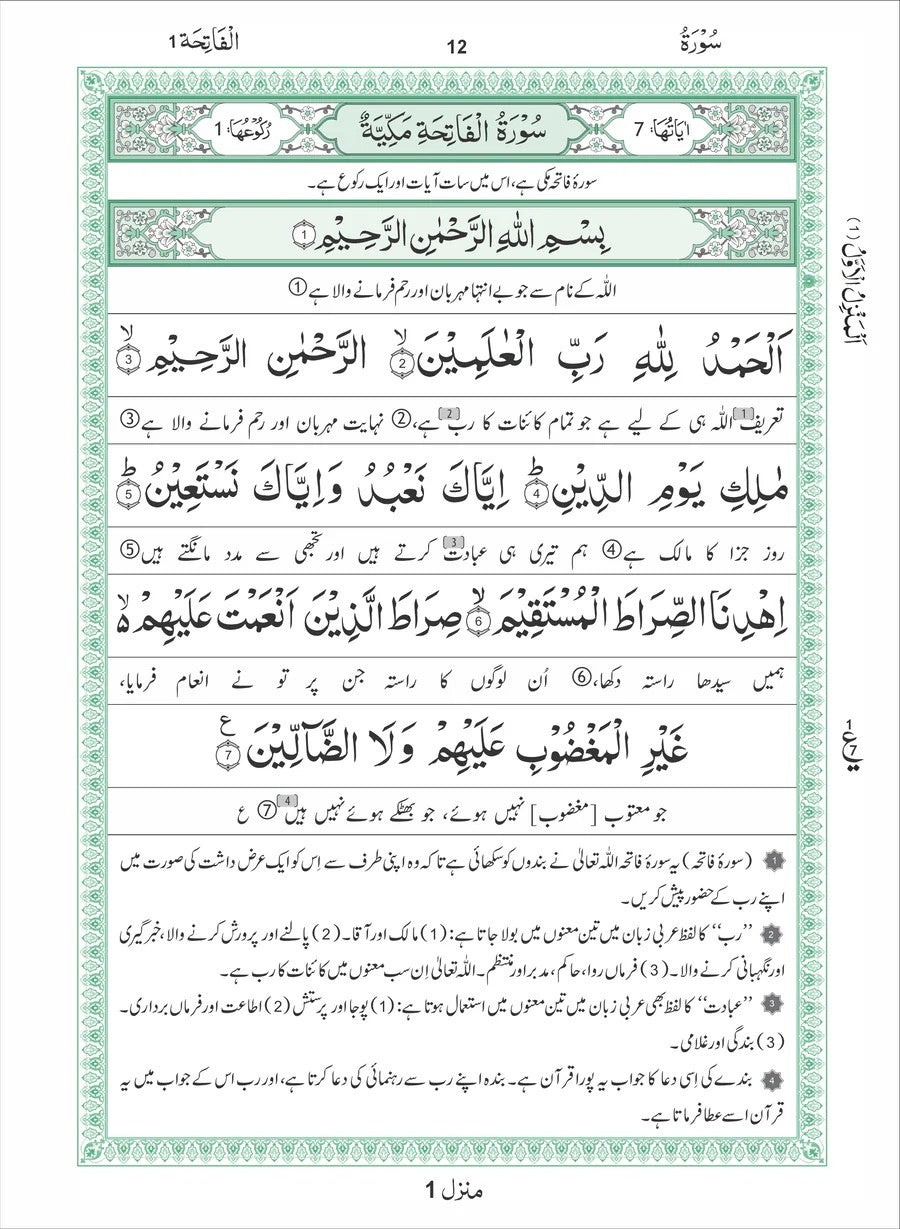 سُوْرَةُ 12 اَلْفَاتِحَة 1
اٰيَاتُهَا: 7 سُوْرَةُ الْفَاتِحَةِ مَكِّيَّةٌ رُكُوْعُهَا: 1
سورۂ فاتحہ مکی ہے، اس میں سات آیات اور ایک رکوع ہے۔
بِسْمِ اللّٰهِ الرَّحْمٰنِ الرَّحِيْمِ 1
اللہ کے نام سے جو بے انتہا مہربان اور رحم فرمانے والا ہے ①
اَلْحَمْدُ لِلّٰهِ رَبِّ الْعٰلَمِيْنَ ۙ 2 الرَّحْمٰنِ الرَّحِيْمِ ۙ 3
تعریف 1 اللہ ہی کے لیے ہے جو تمام کائنات کا رب 2 ہے، ② نہایت مہربان اور رحم فرمانے والا ہے ③
مٰلِكِ يَوْمِ الدِّيْنِ ؕ 4 اِيَّاكَ نَعْبُدُ وَاِيَّاكَ نَسْتَعِيْنُ ؕ 5
روز جزا کا مالک ہے ④ ہم تیری ہی عبادت 3 کرتے ہیں اور تجھی سے مدد مانگتے ہیں ⑤
اِهْدِنَا الصِّرَاطَ الْمُسْتَقِيْمَ ۙ 6 صِرَاطَ الَّذِيْنَ اَنْعَمْتَ عَلَيْهِمْ ۙ۬
ہمیں سیدھا راستہ دکھا، ⑥ اُن لوگوں کا راستہ جن پر تو نے انعام فرمایا،
غَيْرِ الْمَغْضُوْبِ عَلَيْهِمْ وَلَا الضَّآلِّيْنَ ع 7
جو معتوب [مغضوب] نہیں ہوئے، جو بھٹکے ہوئے نہیں ہیں 4 ⑦ ع
1 (سورۂ فاتحہ) یہ سورۂ فاتحہ اللہ تعالیٰ نے بندوں کو سکھائی ہے تاکہ وہ اپنی طرف سے اِس کو ایک عرض داشت کی صورت میں
اپنے رب کے حضور پیش کریں۔
2 ’’رب‘‘ کا لفظ عربی زبان میں تین معنوں میں بولا جاتا ہے: (1) مالک اور آقا۔ (2) پالنے اور پرورش کرنے والا، خبر گیری
اور نگہبانی کرنے والا۔ (3) فرماں روا، حاکم، مدبر اور منتظم۔ اللہ تعالیٰ اِن سب معنوں میں کائنات کا رب ہے۔
3 ’’عبادت‘‘ کا لفظ بھی عربی زبان میں تین معنوں میں استعمال ہوتا ہے: (1) پوجا اور پرستش (2) اطاعت اور فرماں برداری۔
(3) بندگی اور غلامی۔
4 بندے کی اِسی دعا کا جواب یہ پورا قرآن ہے۔ بندہ اپنے رب سے رہنمائی کی دعا کرتا ہے، اور رب اس کے جواب میں یہ
قرآن اسے عطا فرماتا ہے۔
اَلْمَنْزِلُ الْاَوَّلُ (1)
1 ع 7
منزل 1